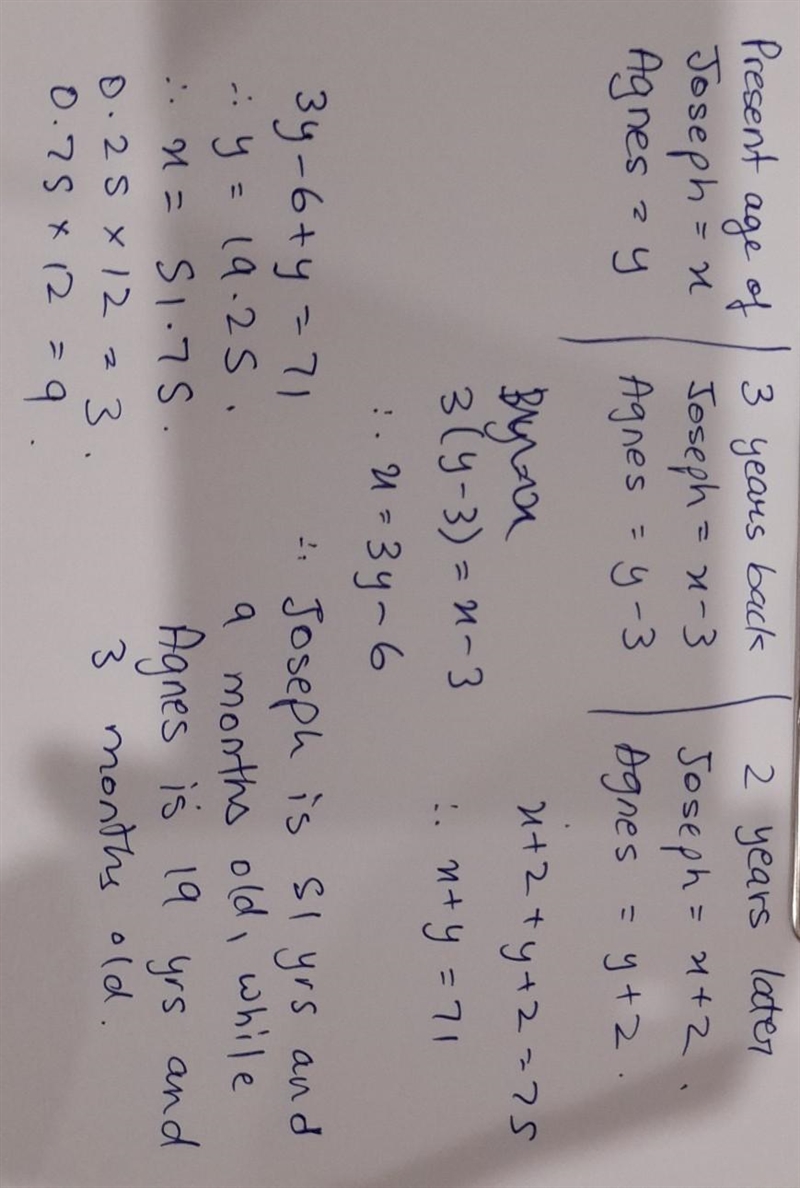 Present age of | 3 years back | 2 years later
Joseph = x | Joseph = x-3 | Joseph = x+2.
Agnes = y | Agnes = y-3 | Agnes = y+2.
3(y-3) = x-3
∴ x = 3y-6
x+2+y+2=75
∴ x+y=71
3y-6+y=71
∴ y = 19.25.
∴ x = 51.75.
0.25 × 12 = 3.
0.75 × 12 = 9.
∴ Joseph is 51 yrs and
9 months old, while
Agnes is 19 yrs and
3 months old.